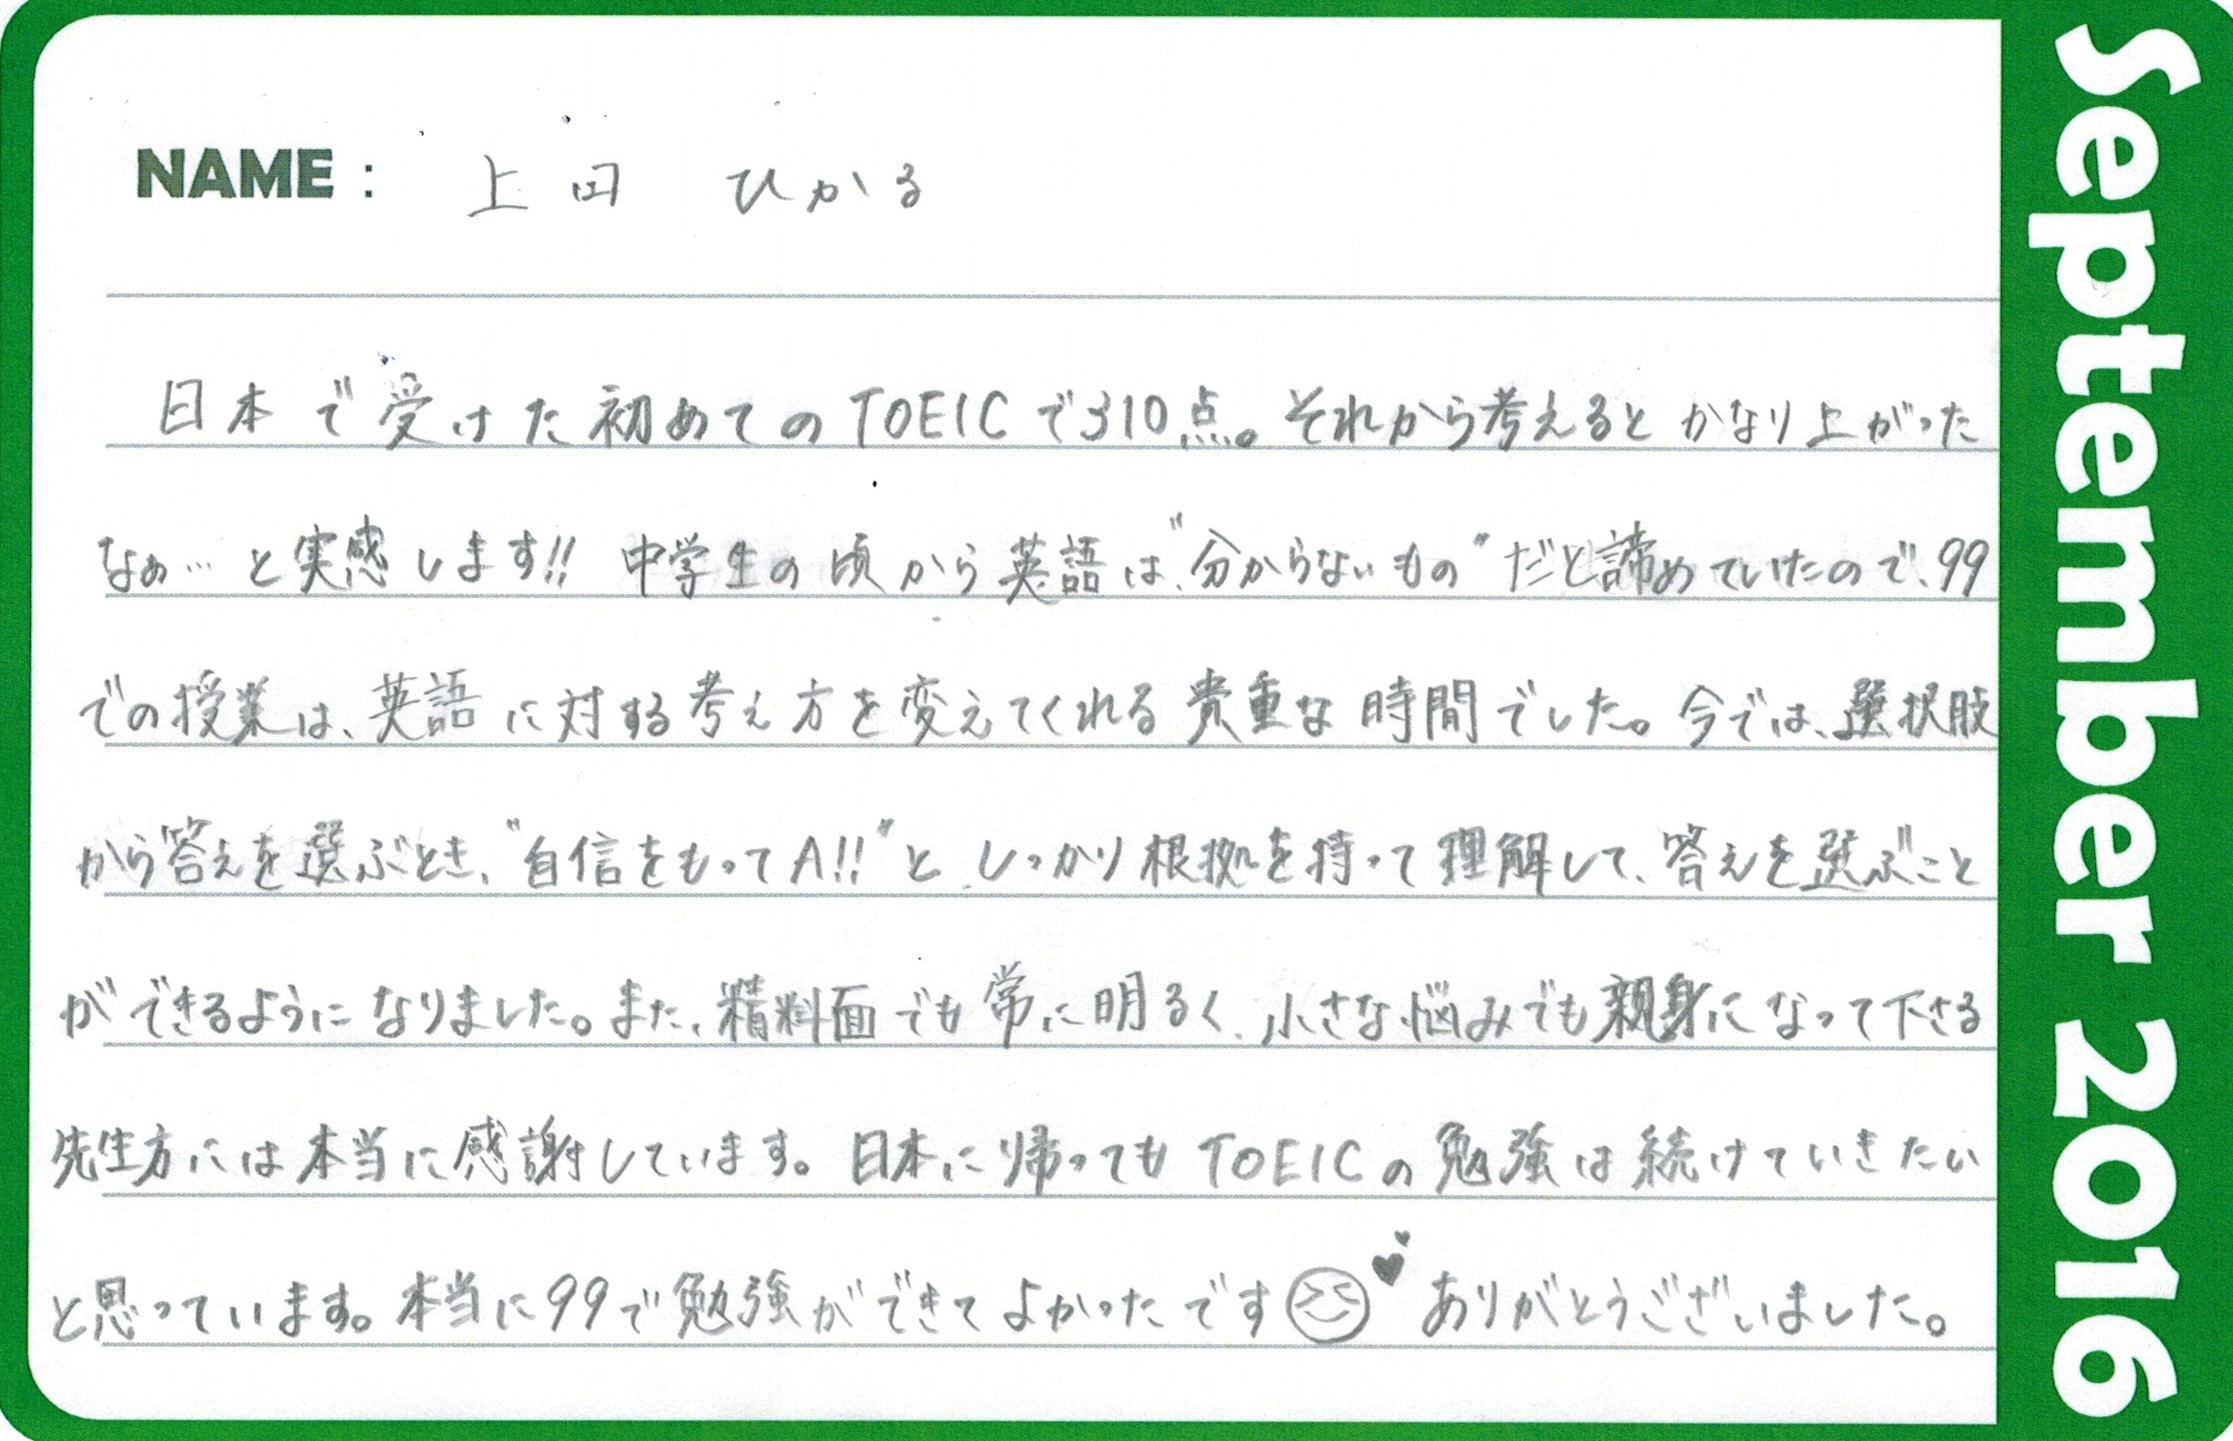 NAME : 上田 ひかる
日本で受けた初めてのTOEICで310点。それから考えるとかなり上がった
なぁ…と実感します!! 中学生の頃から英語は、"分からないもの"だと諦めていたので、99
での授業は、英語に対する考え方を変えてくれる貴重な時間でした。今では、選択肢
から答えを選ぶとき、"自信をもってA!!"と、しっかり根拠を持って理解して、答えを選ぶこと
ができるようになりました。また、精料面でも常に明るく、小さな悩みでも親身になって下さる
先生方には本当に感謝しています。日本に帰ってもTOEICの勉強は続けていきたい
と思っています。本当に99で勉強ができてよかったです ありがとうございました。
September 2016